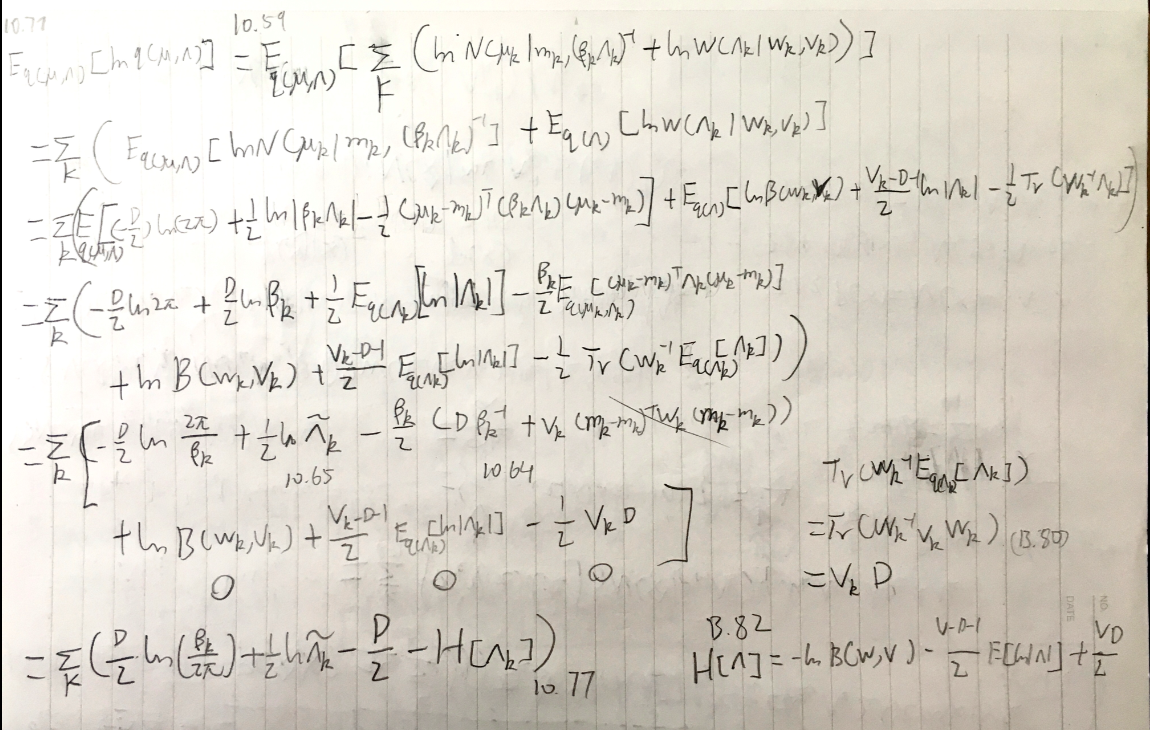 10.77 10.59
E_{q(μ,Λ)}[ln q(μ,Λ)] = E_{q(μ,Λ)} [ Σ_k (ln N(μ_k|m_k,(β_kΛ_k)^{-1} + ln W(Λ_k|W_k,ν_k)) ]
= Σ_k ( E_{q(μ,Λ)} [ ln N(μ_k|m_k, (β_kΛ_k)^{-1}] + E_{q(Λ)} [ln W(Λ_k|W_k,ν_k)]
= Σ_k ( E_{q(μ,Λ)} [(-D/2) ln(2π) + 1/2 ln|β_kΛ_k| - 1/2 (μ_k-m_k)^T (β_kΛ_k)(μ_k-m_k)] + E_{q(Λ)} [ln B(W_k,ν_k) + ν_k-D-1/2 ln|Λ_k| - 1/2 Tr(W_k^{-1}Λ_k)] )
= Σ_k ( -D/2 ln 2π + D/2 ln β_k + 1/2 E_{q(Λ_k)}[ln|Λ_k|] - β_k/2 E_{q(μ_k,Λ_k)} [(μ_k-m_k)^T Λ_k(μ_k-m_k)]
+ ln B(W_k,ν_k) + ν_k-D-1/2 E_{q(Λ_k)}[ln|Λ_k|] - 1/2 Tr(W_k^{-1} E_{q(Λ_k)}[Λ_k]) )
= Σ_k [ -D/2 ln 2π/β_k + 1/2 ln Λ̃_k - β_k/2 (Dβ_k^{-1} + ν_k (m_k-m_k)^T W_k (m_k-m_k))
10.65 10.64
+ ln B(W_k,ν_k) + ν_k-D-1/2 E_{q(Λ_k)}[ln|Λ_k|] - 1/2 ν_k D ]
Tr(W_k^{-1} E_{q(Λ_k)}[Λ_k])
= Tr(W_k^{-1} ν_k W_k) (B.80)
= ν_k D
= Σ_k ( D/2 ln(β_k/2π) + 1/2 ln Λ̃_k - D/2 - H[Λ_k] )
10.77
B.82
H[Λ] = -ln B(W,ν) - ν-D-1/2 E[ln|Λ|] + νD/2
NO.
DATE